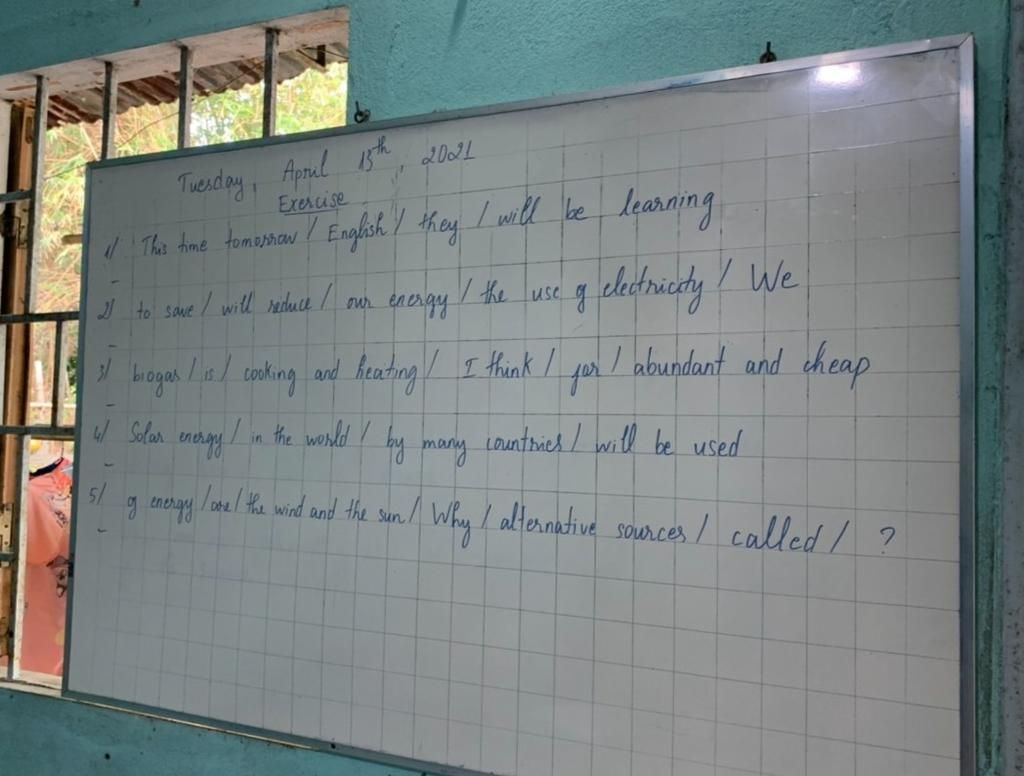 Tuesday, April 13th, 2021
Exercise
1/ This time tomorrow / English / they / will be learning
-
2/ to save / will reduce / our energy / the use of electricity / We
-
3/ biogas / is / cooking and heating / I think / for / abundant and cheap
-
4/ Solar energy / in the world / by many countries / will be used
-
5/ of energy / are / the wind and the sun / Why / alternative sources / called / ?
-